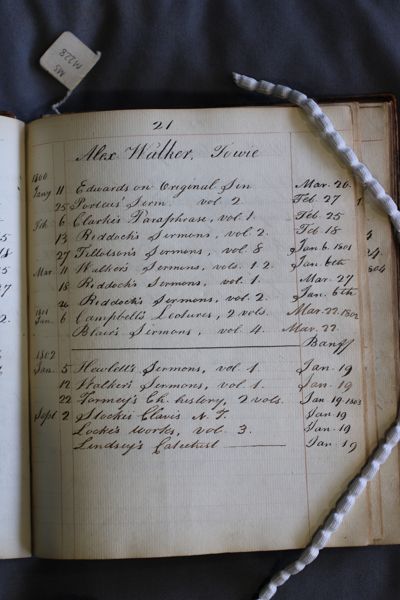 MS M 228
21
Alex Walker, Towie
1800
Jany 11 Edwards on Original Sin Mar. 26
25 Porteus' Serm. vol 2 Feb 27
Feb 6 Clarke's Paraphrase, vol 1. Feb 25
13 Riddoch's Sermons, vol. 2 Feb 18
27 Tillotson's Sermons, vol. 8 Jan. 6. 1801
Mar 11 Walker's Sermons, vols. 1. 2. Jan 6th
18 Riddoch's Sermons, vol. 1. Mar. 27
26 Riddoch's Sermons, vol. 2 Jan. 6th
1801
Jan 6 Campbell's Lectures, 2 vols. Mar. 22. 1802
Blair's Sermons, vol. 4. Mar. 22.
Banff
1802
Jan. 5 Hewlett's Sermons, vol 1. Jan 19
12 Walker's Sermons, vol 1. Jan. 19
22 Formey's Ch. history, 2 vols. Jan 19. 1803
Sept 2 Stockii Clavis N. T. Jan 19
Locke's Works, vol. 3. Jan. 19
Lindsey's Catechist Jan. 19